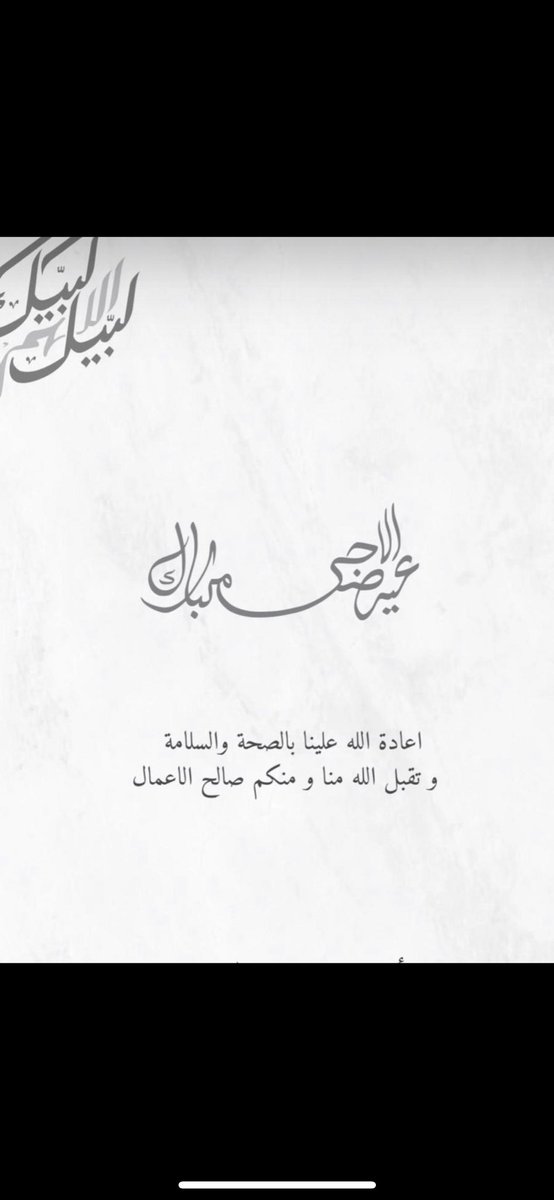 لبيك
اللهم
لبيك
عيد الاضحى مبارك
اعادة الله علينا بالصحة والسلامة
و تقبل الله منا و منكم صالح الاعمال